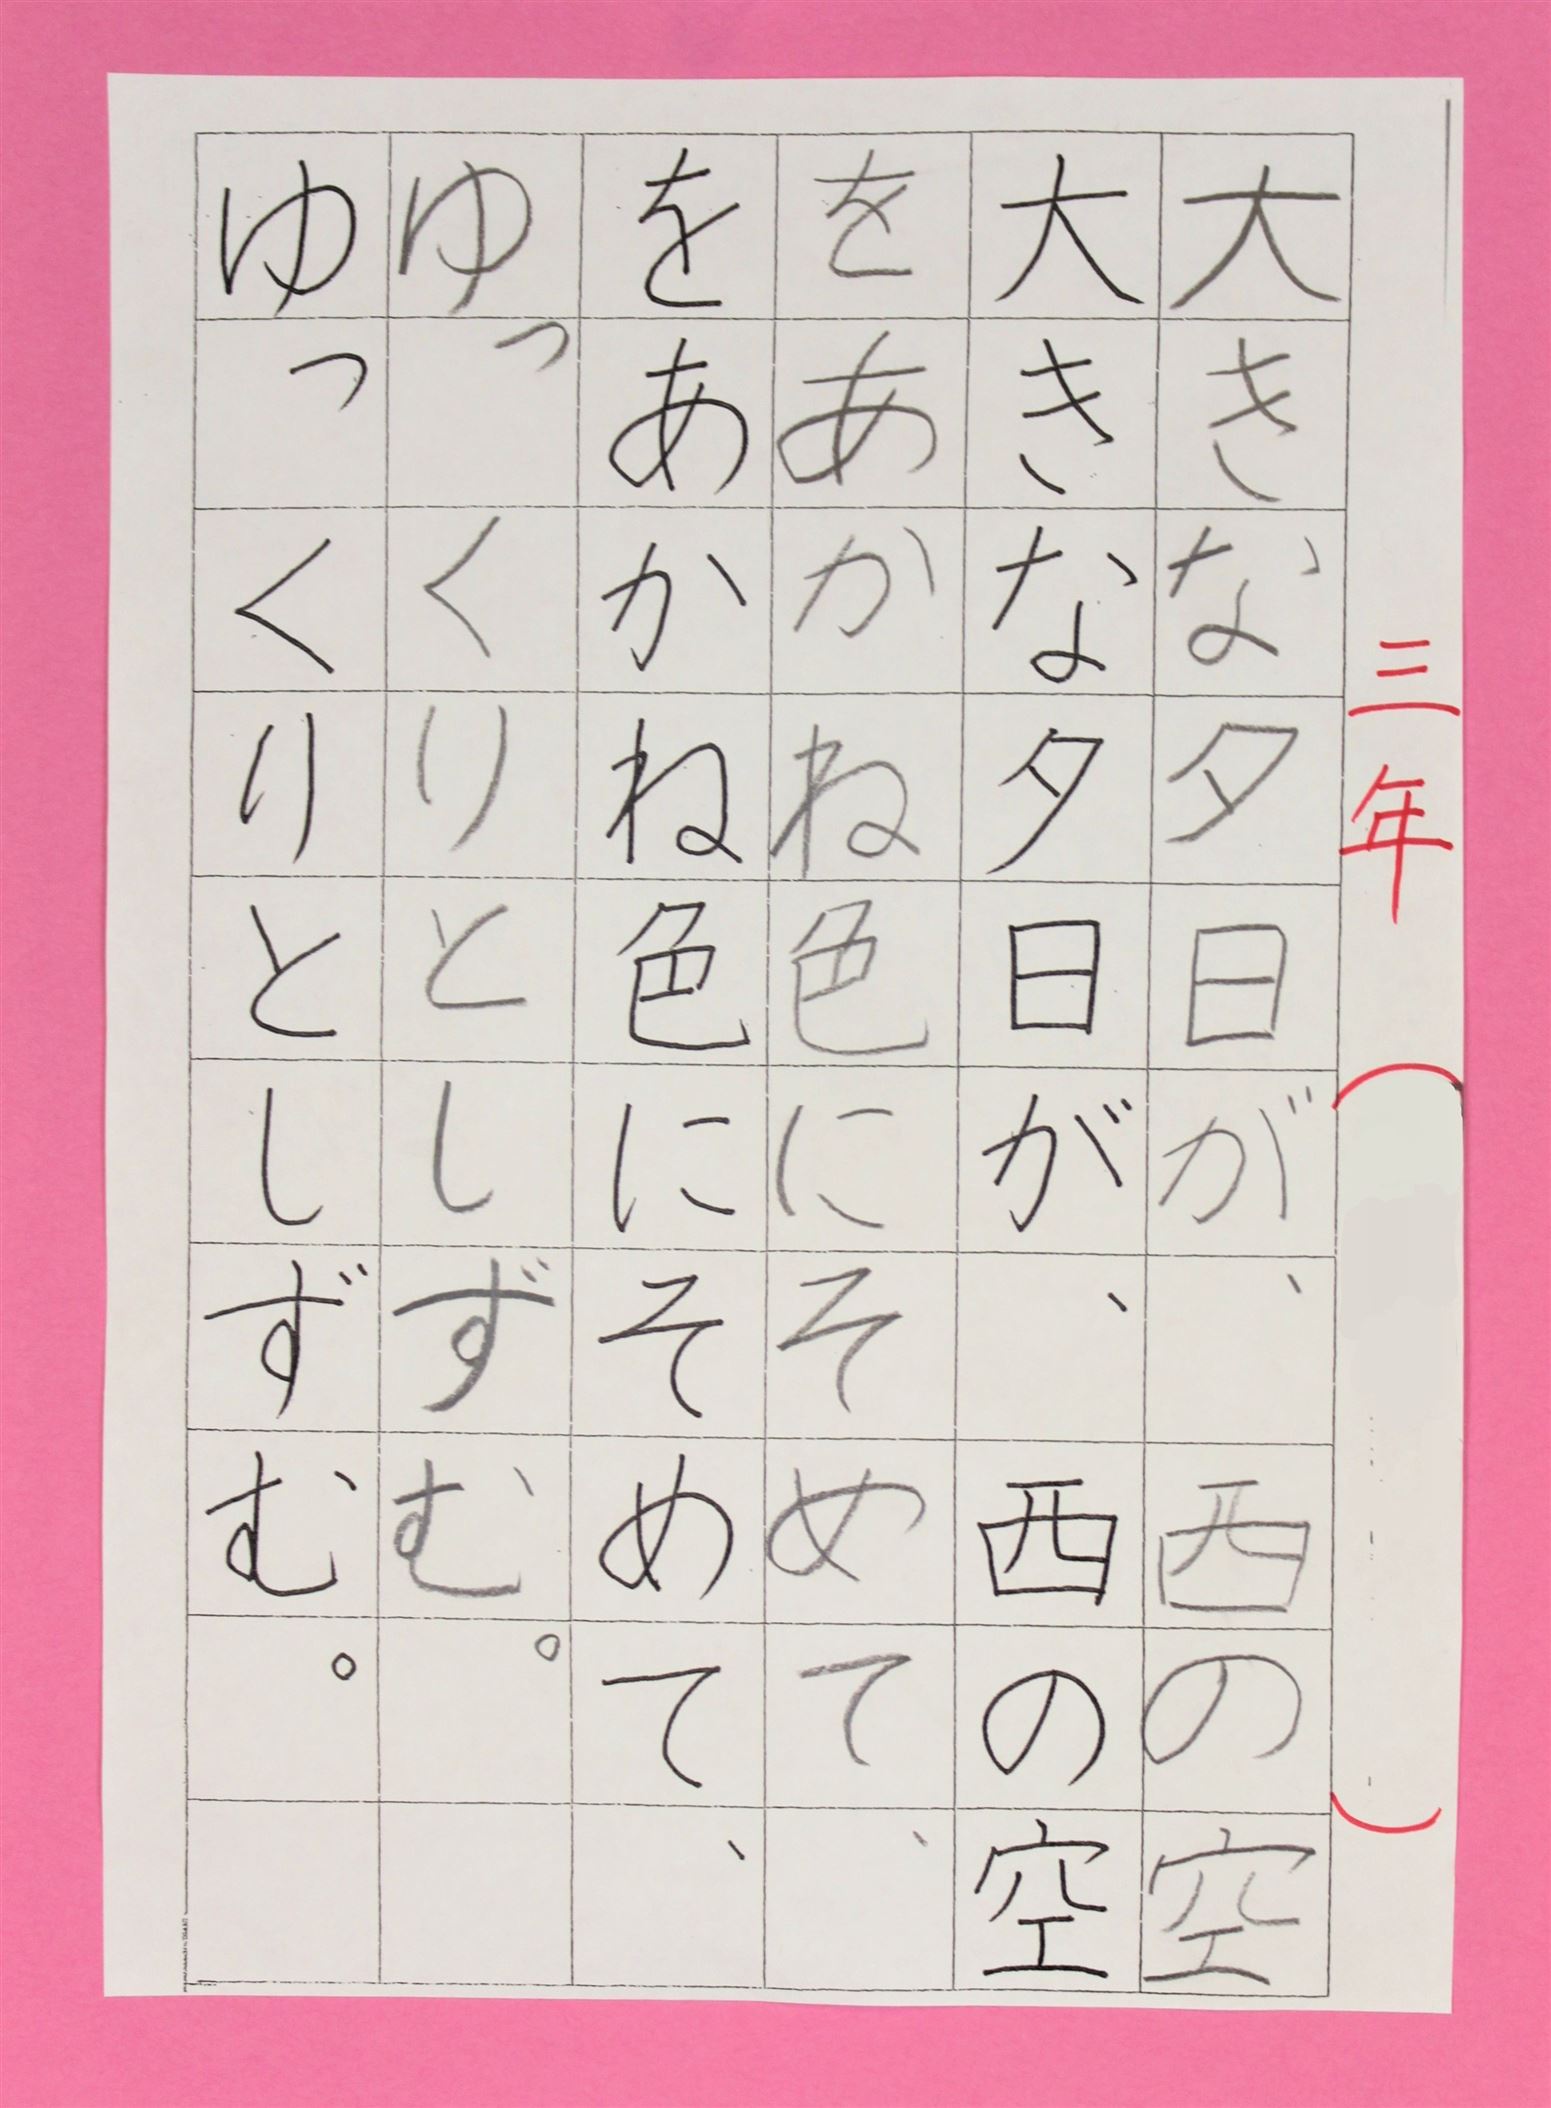 三年（ ）
大きな夕日が、西の空
大きな夕日が、西の空
をあかね色にそめて、
をあかね色にそめて、
ゆっくりとしずむ。
ゆっくりとしずむ。